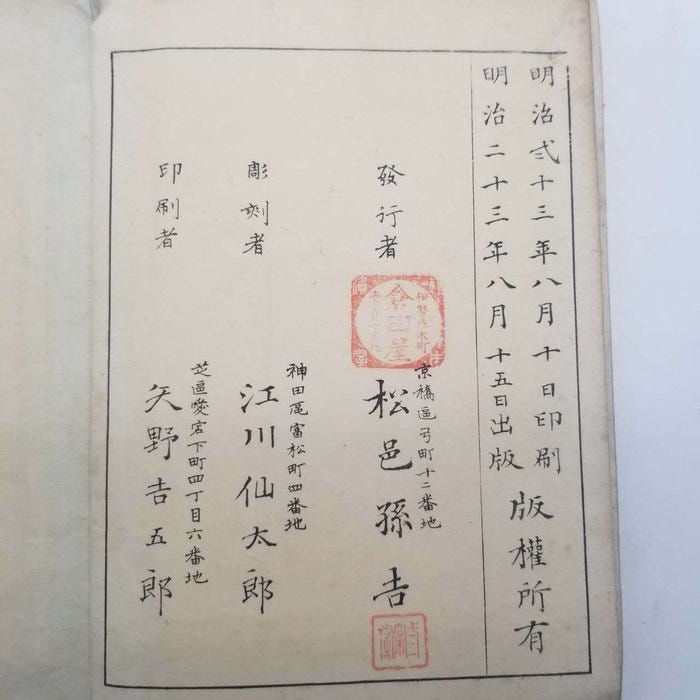 明治弐十三年八月十日印刷
明治二十三年八月十五日出版
版權所有
發行者
京橋區弓町十二番地
松邑孫吉
彫刻者
神田區富松町四番地
江川仙太郎
印刷者
芝區愛宕下町四丁目六番地
矢野吉五郎
倉田屋